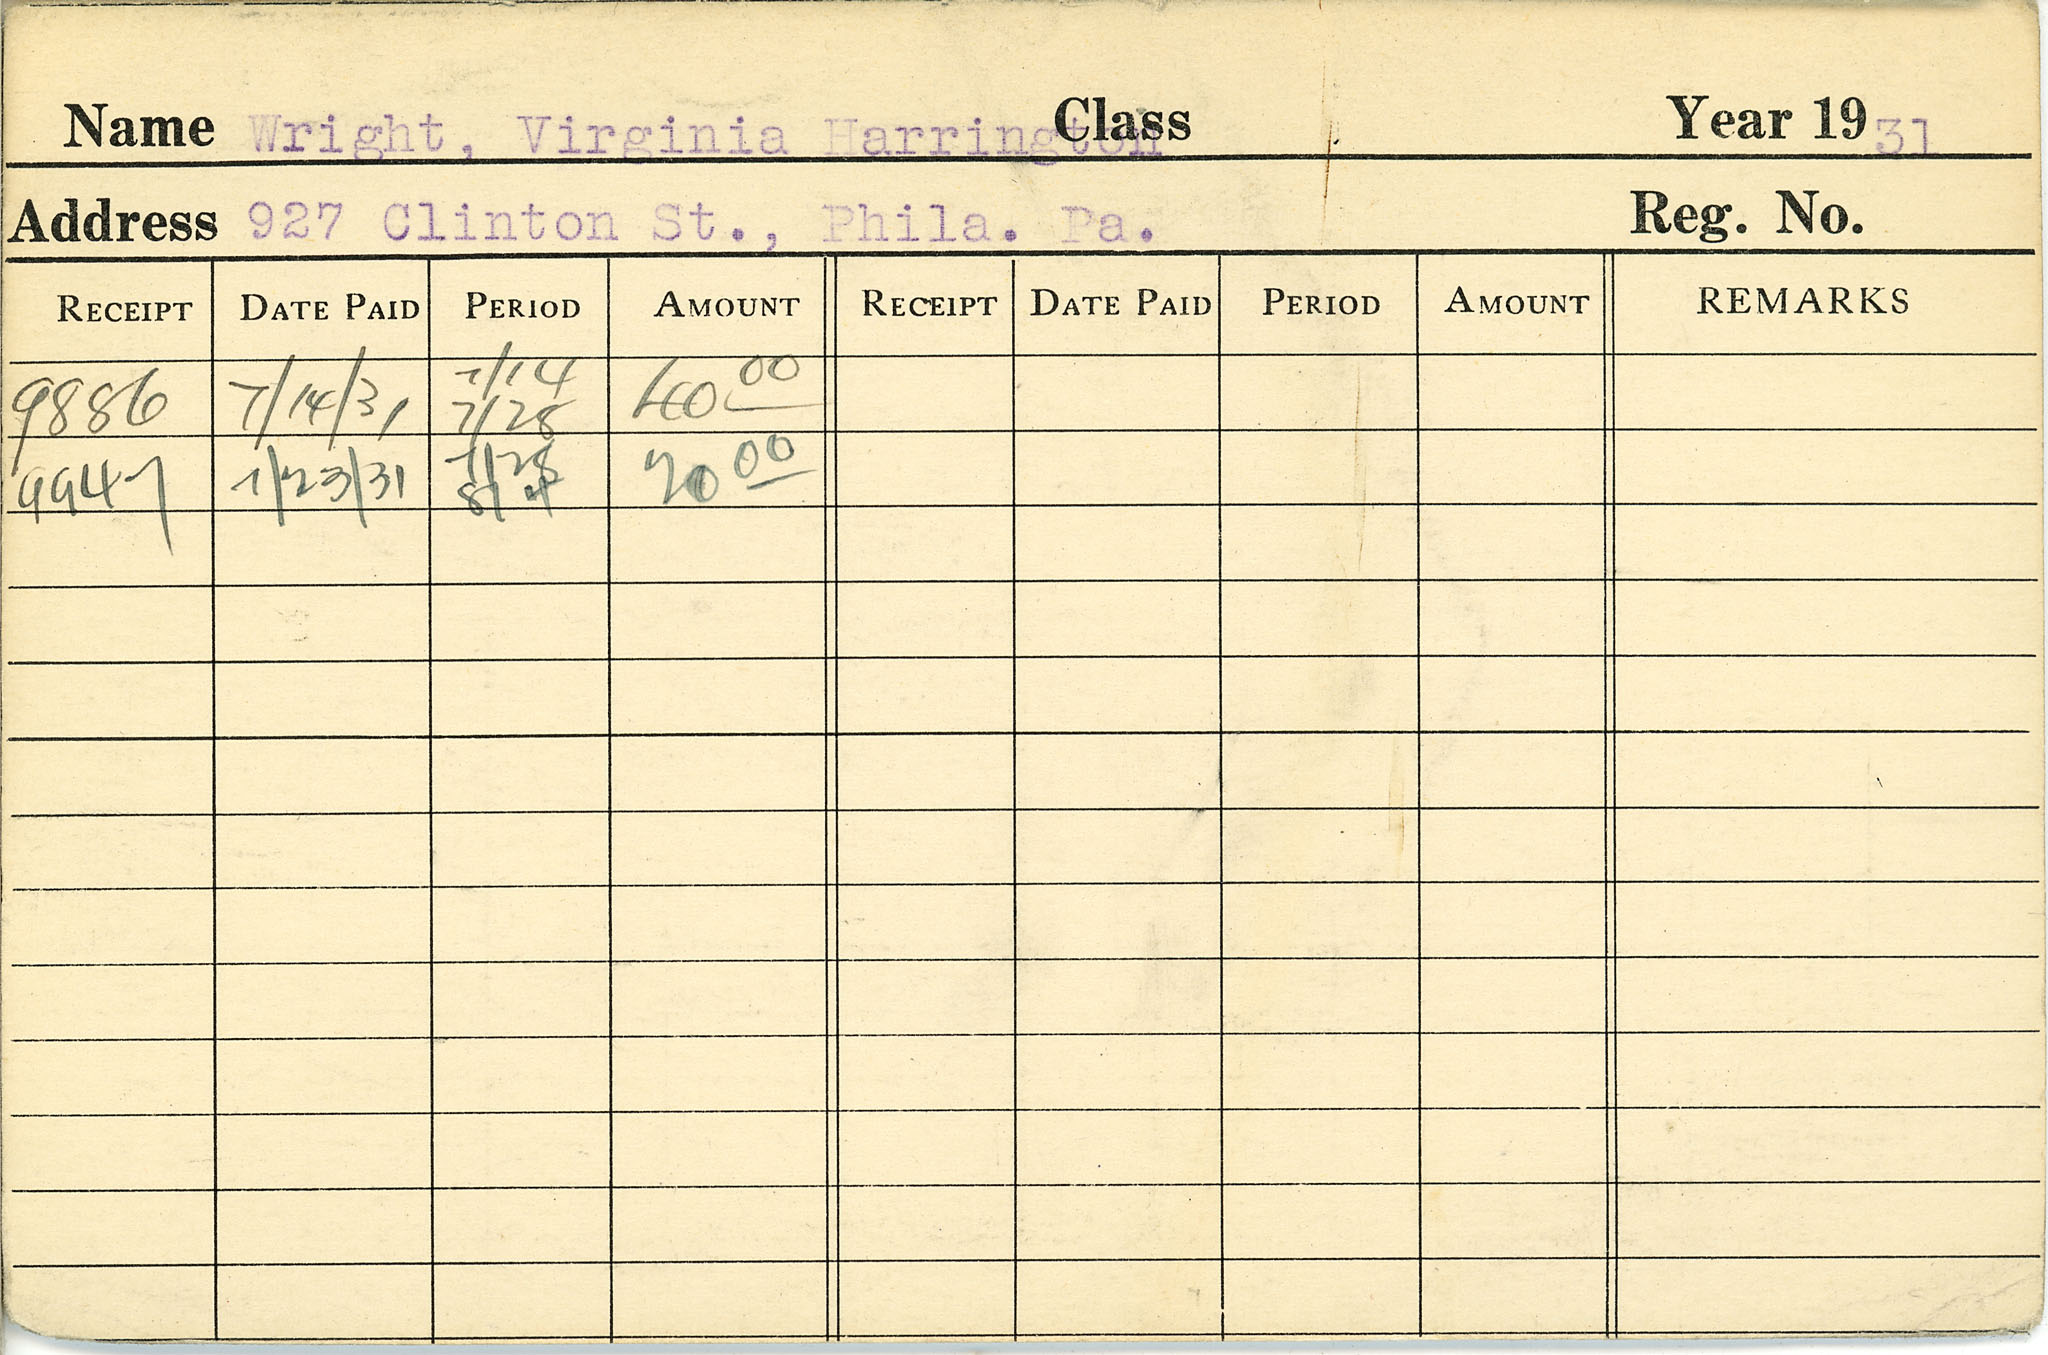 Name Wright, Virginia Harrington Class Year 1931
Address 927 Clinton St., Phila. Pa. Reg. No.
RECEIPT DATE PAID PERIOD AMOUNT RECEIPT DATE PAID PERIOD AMOUNT REMARKS
9886 7/14/31 7/14 7/28 40 00
9947 7/23/31 7/28 8/4 20 00